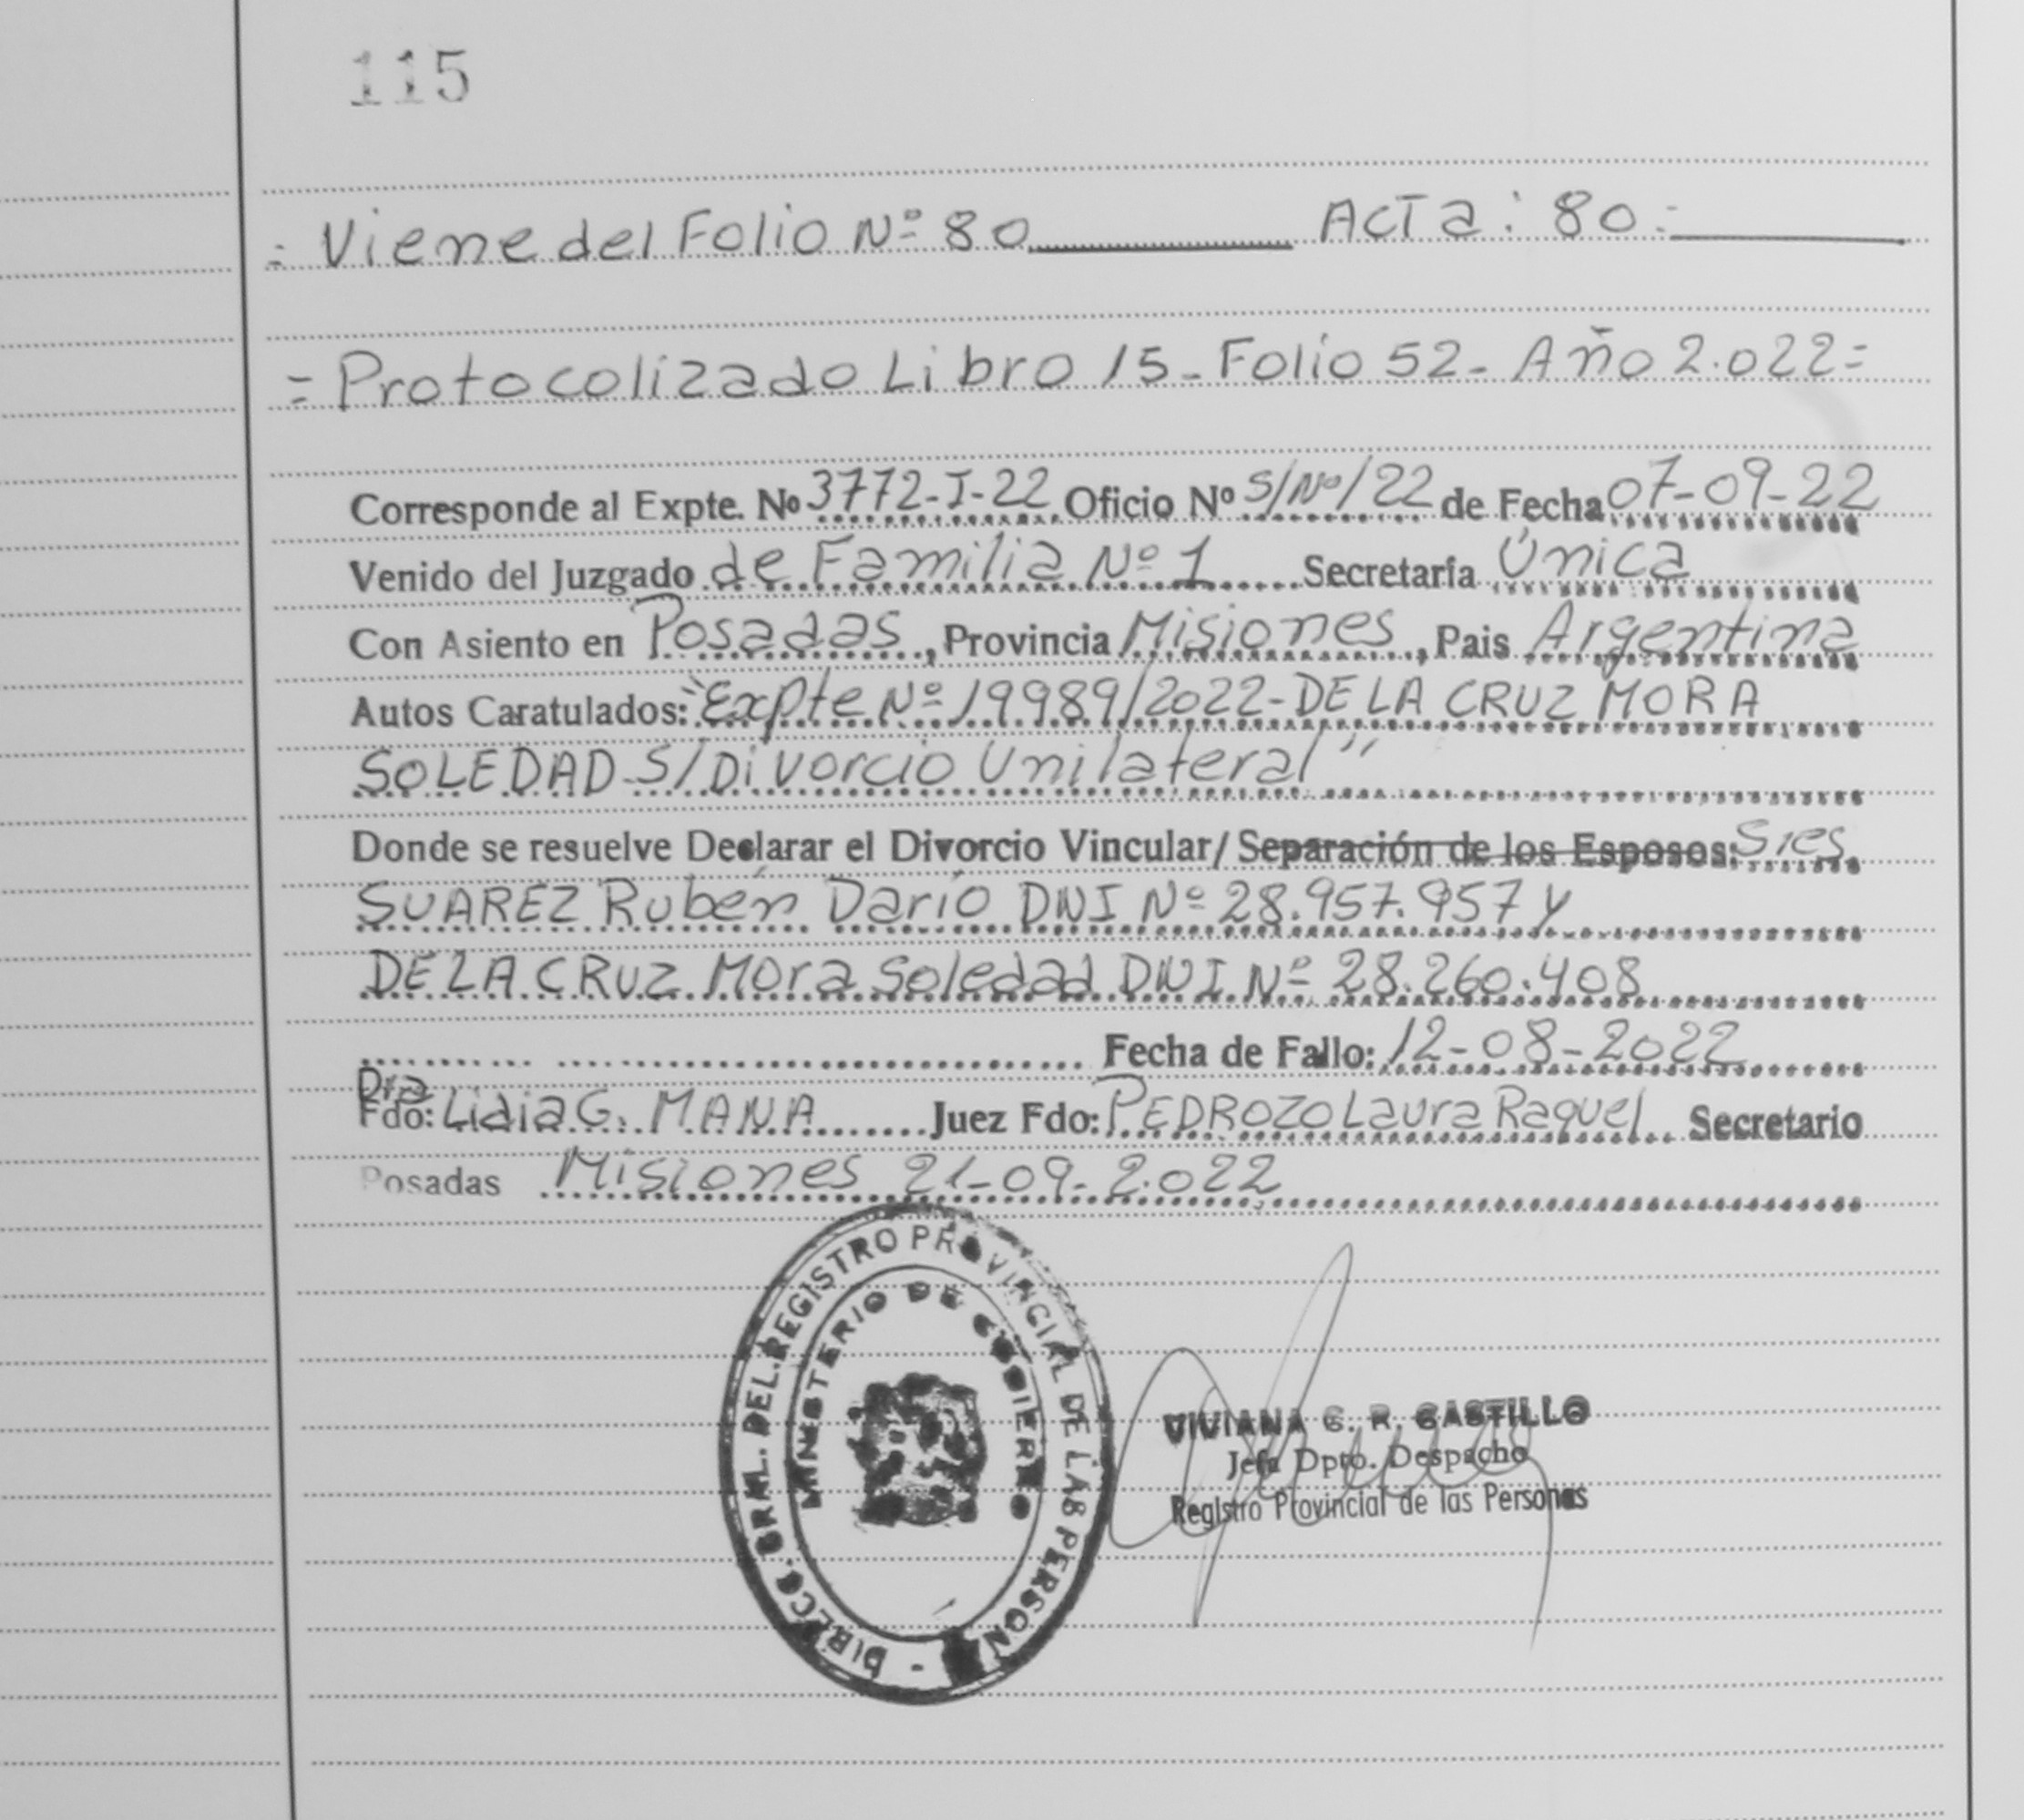 115
= Viene del Folio Nº 80 ACTA: 80.-
= Protocolizado Libro 15 - Folio 52 - Año 2.022 =
Corresponde al Expte. Nº 3772-I-22 Oficio Nº S/Nº/22 de Fecha 07-09-22
Venido del Juzgado de Familia Nº 1 Secretaría Única
Con Asiento en Posadas, Provincia Misiones, Pais Argentina
Autos Caratulados: "Expte Nº 19989/2022- DE LA CRUZ MORA
SOLEDAD S/Divorcio Unilateral"
Donde se resuelve Declarar el Divorcio Vincular/ Separación de los Esposos: Sres
SUAREZ Rubén Darío DNI Nº 28.957.957 y
DE LA CRUZ Mora Soledad DNI Nº 28.260.408
Fecha de Fallo: 12-08-2022
Dra
Fdo: Lidia G. MANA Juez Fdo: PEDROZO Laura Raquel Secretario
Posadas Misiones 21-09-2.022
DIRECC. GRAL. DEL REGISTRO PROVINCIAL DE LAS PERSON
MINISTERIO DE GOBIERNO
VIVIANA G. R. CASTILLO
Jefa Dpto. Despacho
Registro Provincial de las Personas